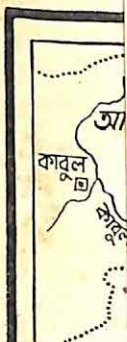 আ
কাবুল
কাবুল